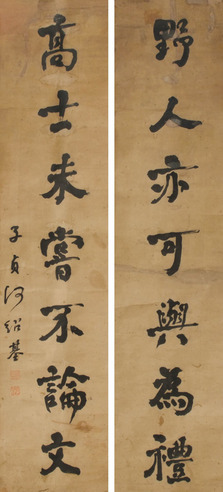 野人亦可與為禮
高士未嘗不論文
子貞何紹基